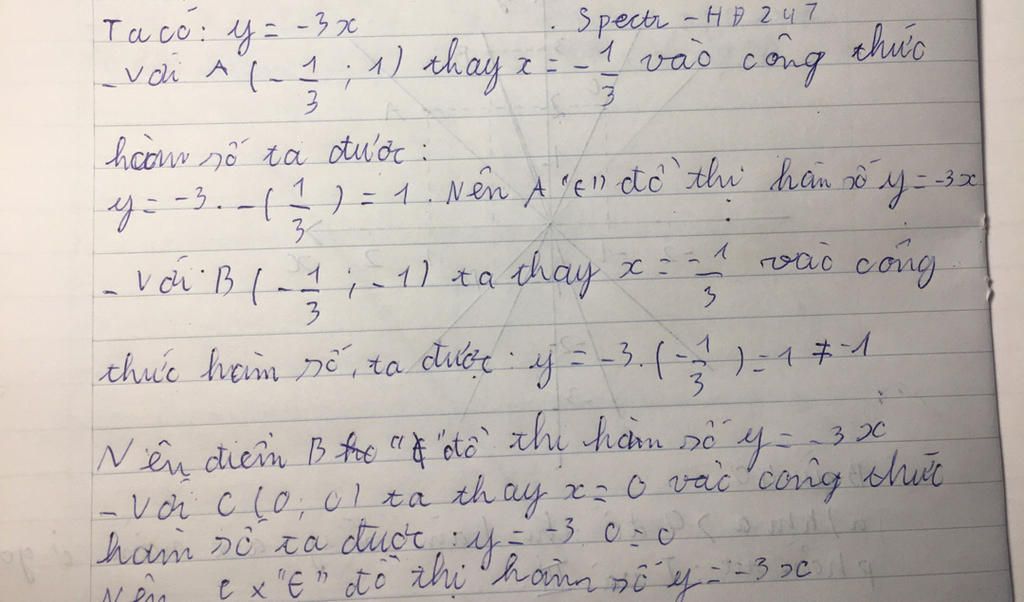 Ta có: y = -3x . Spectr - HĐ 247
- Với A (-1/3 ; 1) thay x = -1/3 vào công thức
hàm số ta được:
y = -3 . -(1/3) = 1 . Nên A "∈" đồ thị hàn số y = -3x
- Với B (-1/3 ; -1) ta thay x = -1/3 vào công
thức hàm số, ta được : y = -3. (-1/3) = 1 ≠ -1
Nên điểm B "∉" đồ thị hàm số y = -3x
- Với C (0; 0) ta thay x = 0 vào công thức
hàm số ta được : y = -3 . 0 = 0
Nên C x "∈" đồ thị hàm số y = -3x